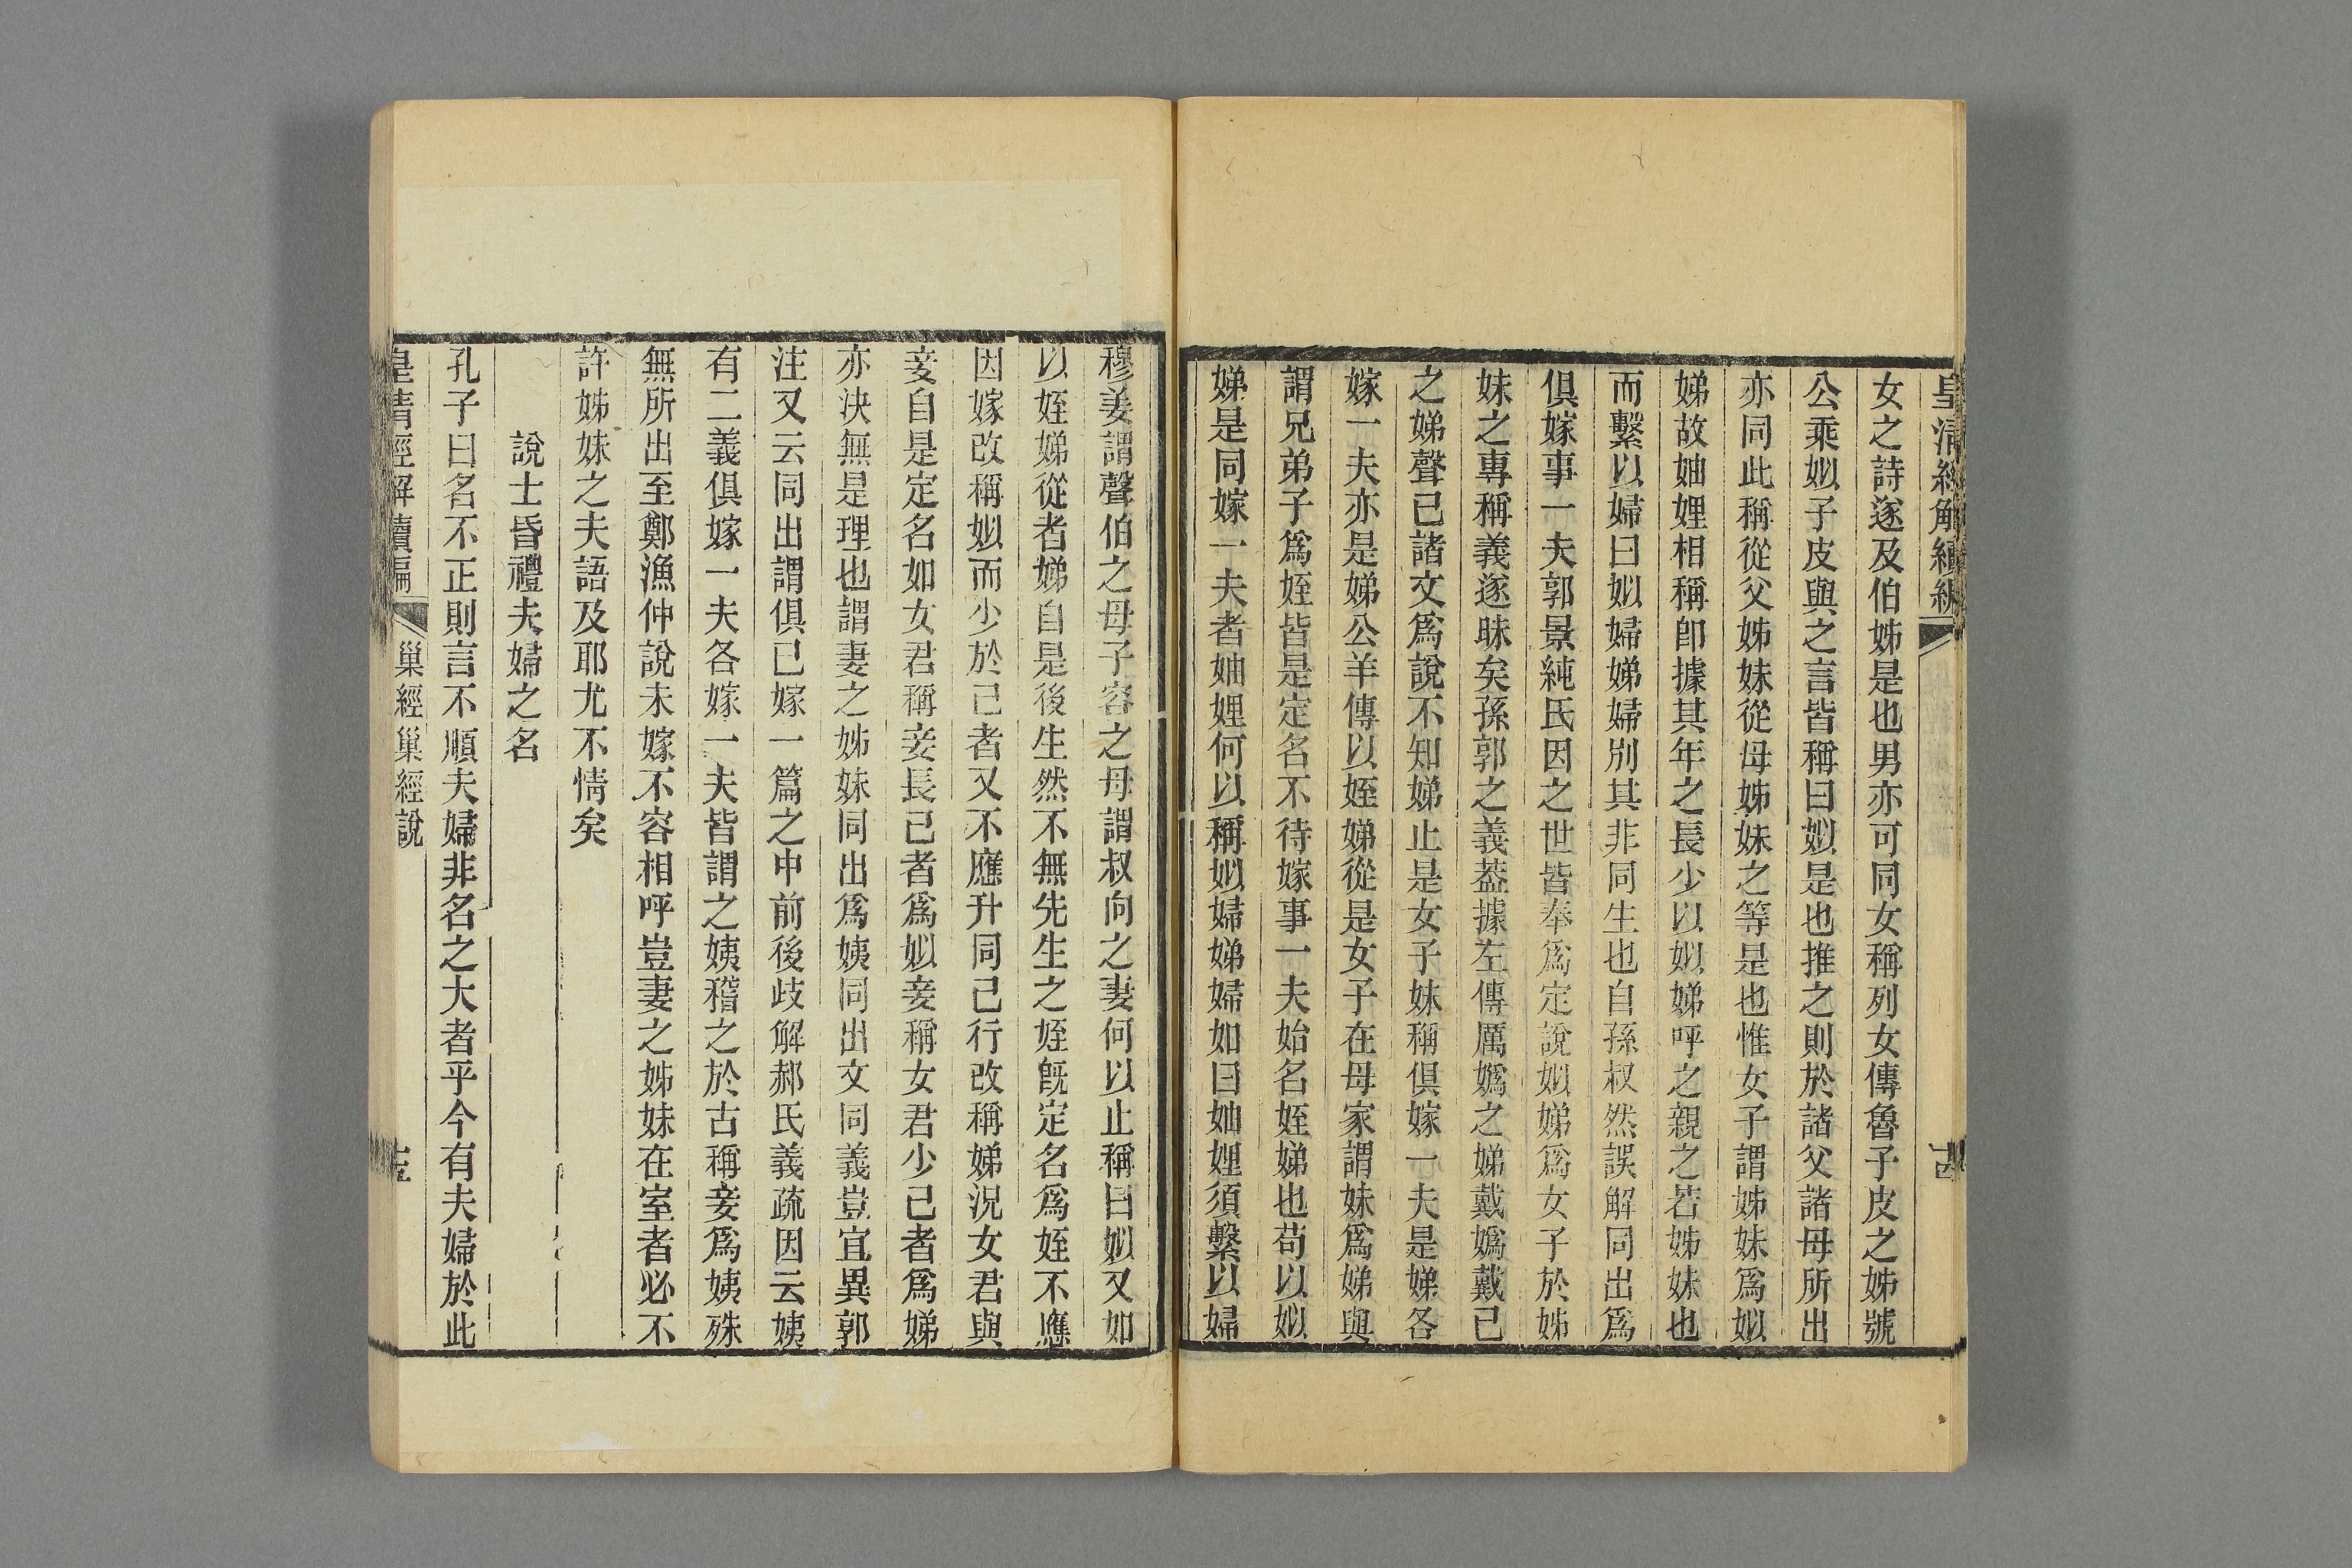 皇清經解續編
十四
女之詩遂及伯姊是也男亦可同女稱列女傳魯子皮之姊號
公乘姒子皮與之言皆稱曰姒是也推之則於諸父諸母所出
亦同此稱從父姊妹從母姊妹之等是也惟女子謂姊妹爲姒
娣故妯娌相稱卽據其年之長少以姒娣呼之親之若姊妹也
而繫以婦曰姒婦娣婦別其非同生也自孫叔然誤解同出爲
俱嫁事一夫郭景純氏因之世皆奉爲定說姒娣爲女子於姊
妹之專稱義遂昧矣孫郭之義葢據左傳厲嬀之娣戴嬀戴己
之娣聲己諸文爲說不知娣止是女子妹稱俱嫁一夫是娣各
嫁一夫亦是娣公羊傳以姪娣從是女子在母家謂妹爲娣與
謂兄弟子爲姪皆是定名不待嫁事一夫始名姪娣也苟以姒
娣是同嫁一夫者妯娌何以稱姒婦娣婦如曰妯娌須繫以婦
穆姜謂聲伯之母子容之母謂叔向之妻何以止稱曰姒又如
以姪娣從者娣自是後生然不無先生之姪旣定名爲姪不應
因嫁改稱姒而少於己者又不應升同己行改稱娣況女君與
妾自是定名如女君稱妾長己者爲姒妾稱女君少己者爲娣
亦决無是理也謂妻之姊妹同出爲姨同出文同義豈宜異郭
注又云同出謂俱已嫁一篇之中前後歧解郝氏義疏因云姨
有二義俱嫁一夫各嫁一夫皆謂之姨稽之於古稱妾爲姨殊
無所出至鄭漁仲說未嫁不容相呼豈妻之姊妹在室者必不
許姊妹之夫語及耶尤不情矣
說士昏禮夫婦之名
孔子曰名不正則言不順夫婦非名之大者乎今有夫婦於此
皇清經解續編
巢經巢經說
十五